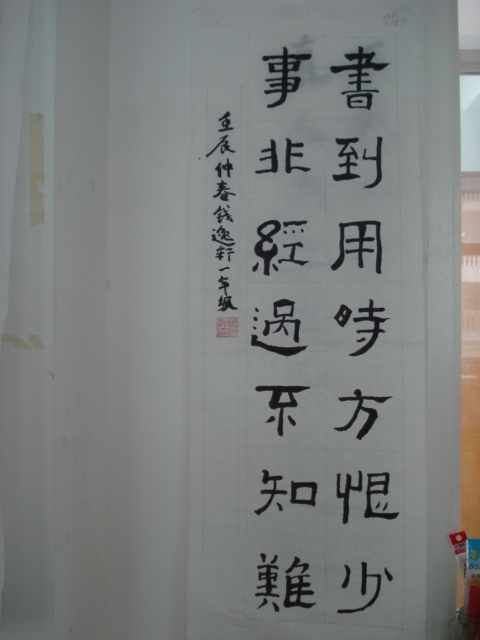 書到用時方恨少
事非經過不知難
壬辰仲春钱逸轩一年级